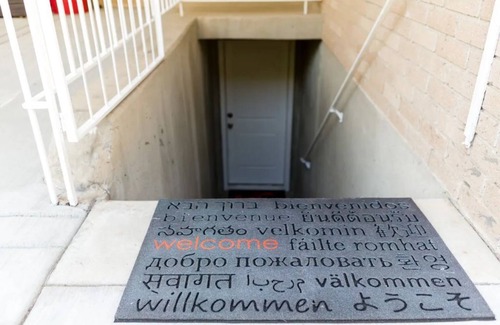 ברוך הבא bienvenidos
bienvenue ยินดีต้อนรับ
velkomin 欢迎
welcome fáilte romhat
добро пожаловать 환영
स्वागत مرحبا välkommen
willkommen ようこそ